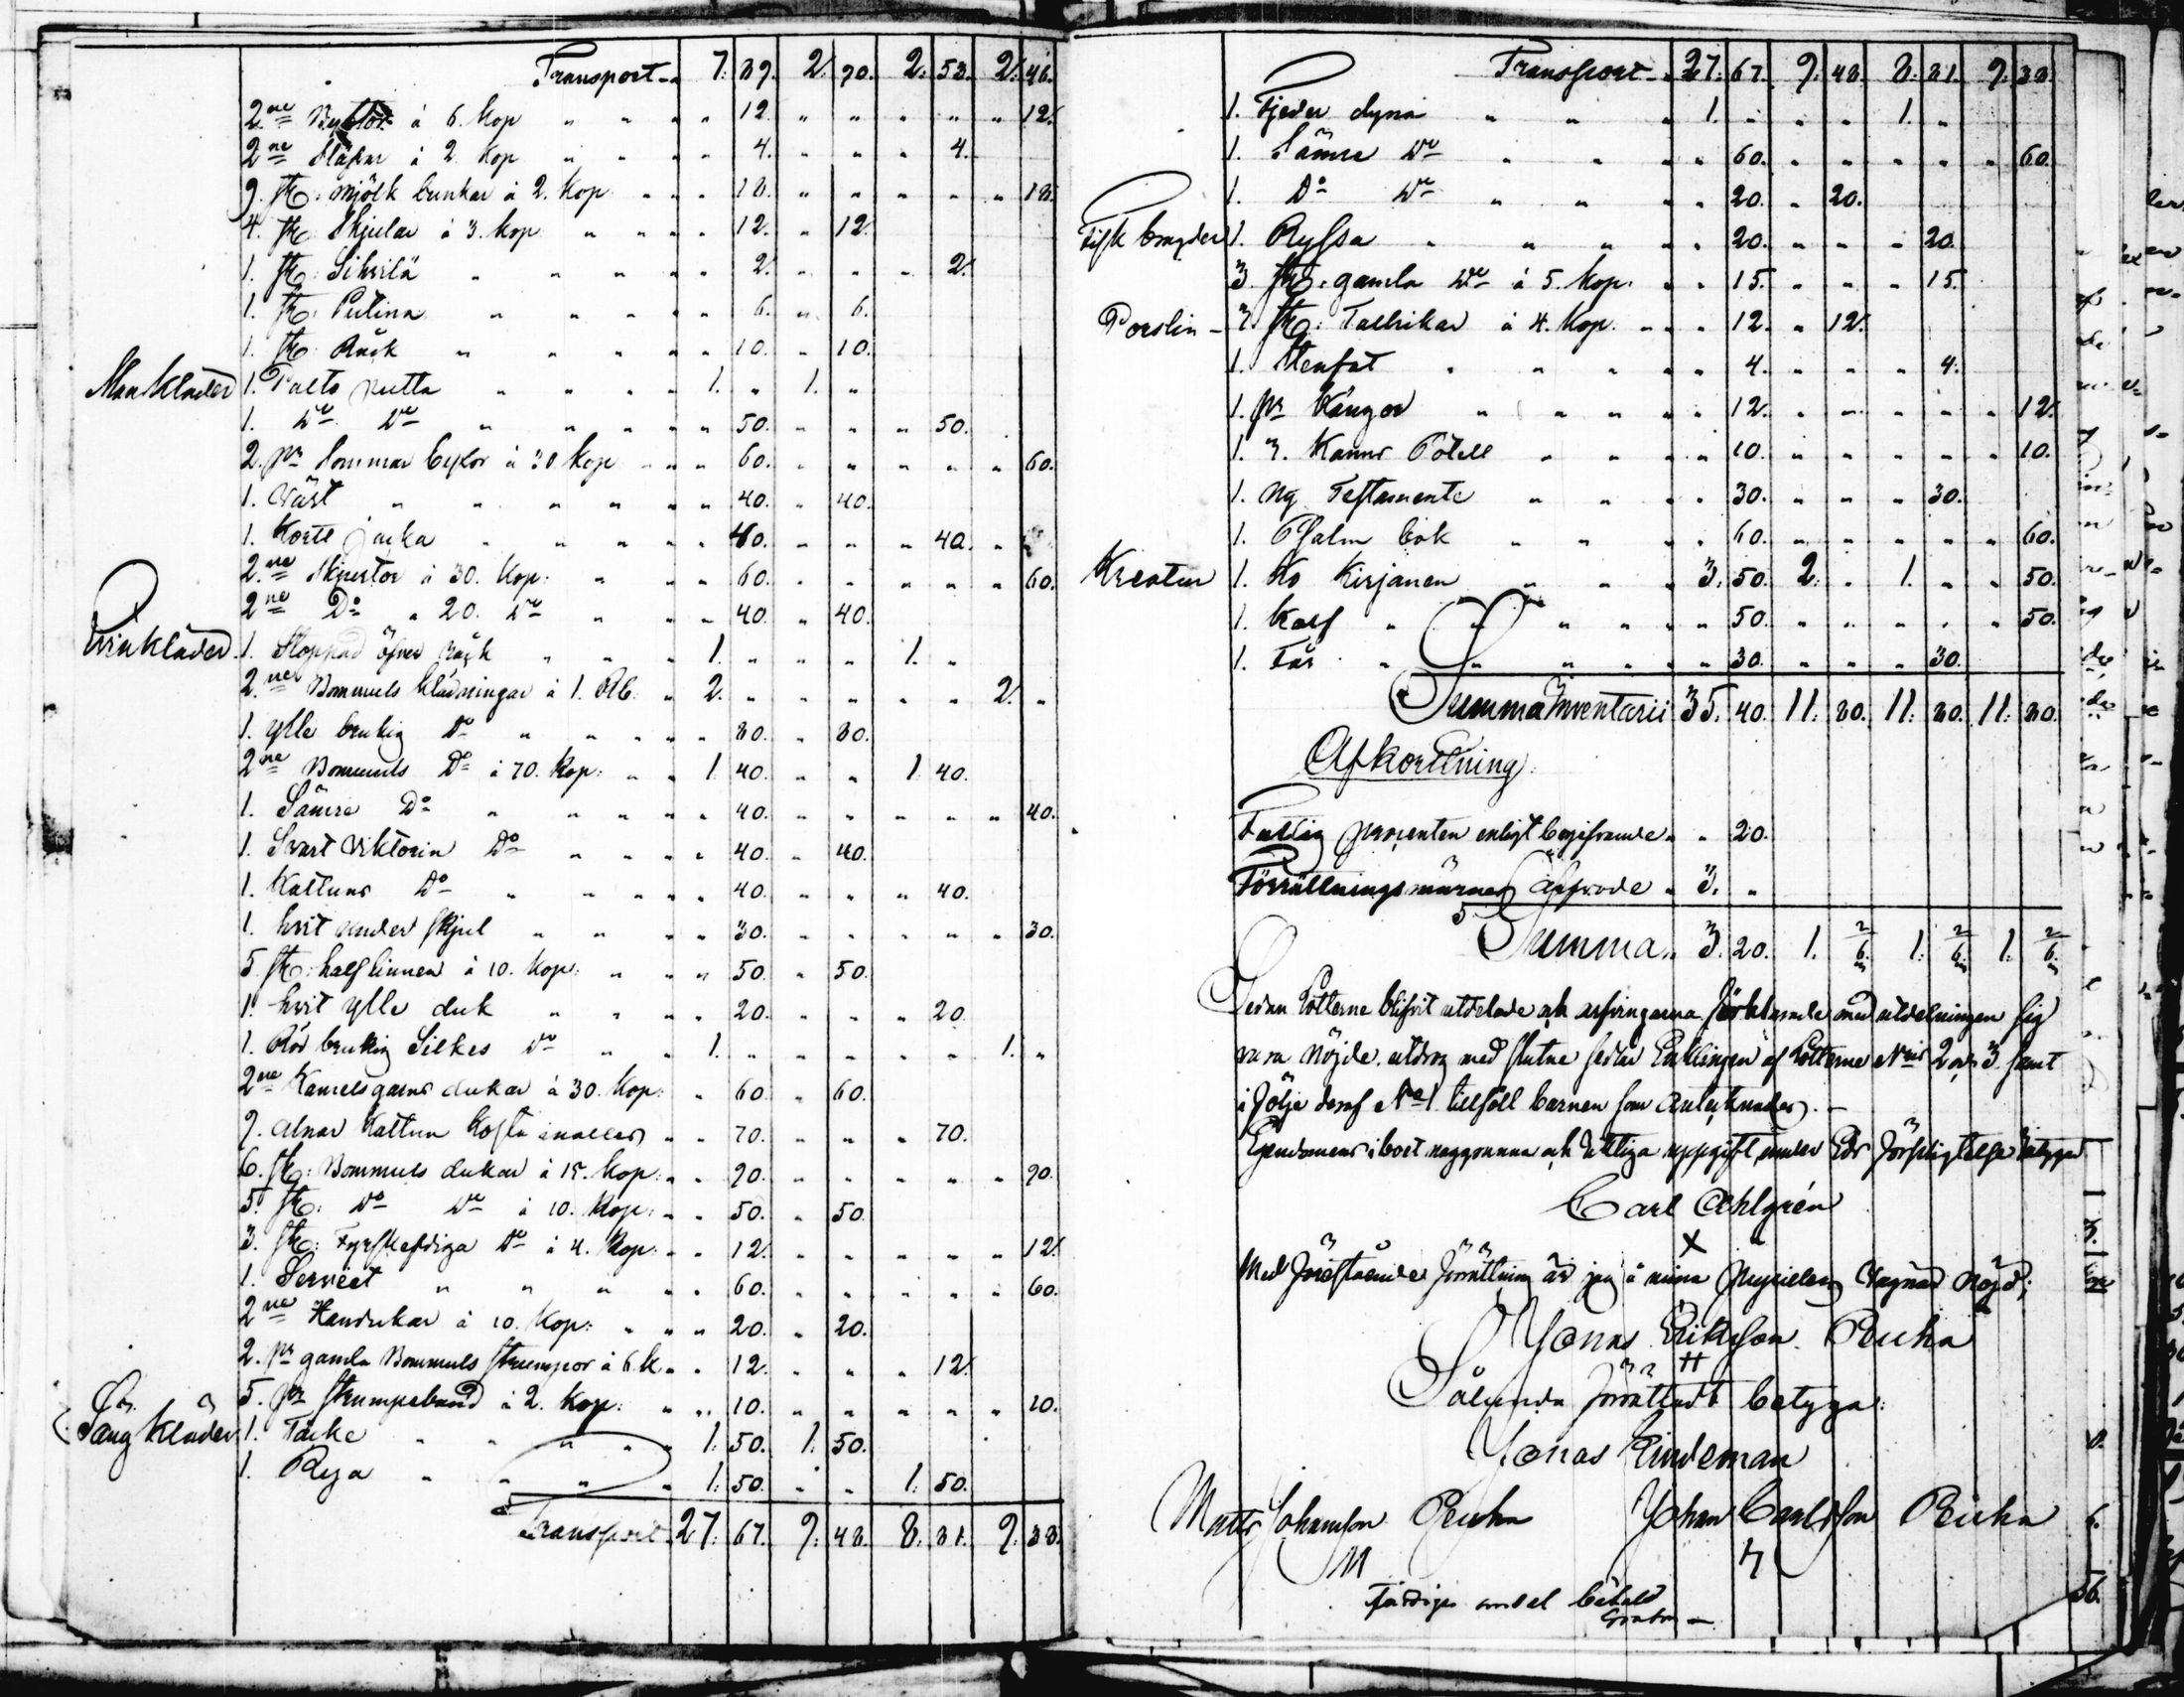 Transport 7: 89. 2. 90. 2. 53. 2. 46.
2ne Byttor à 6. Kop " 12. " " " " " 12.
2ne à 2. Kop " 4. " " " 4.
9. st: mjölk bunkar à 2. Kop " 18. " " " " " 18.
4. st: Skjular à 3. Kop " 12. " 12.
1. st: " 2. " " " 2.
1. st: Putina " 6. " 6.
1. st: Råck " 10. " 10.
Manskläder 1. Palto 1. " 1. "
1. Do Do " 50. " " " 50.
2. pr Sommar byxor à 30 Kop " 60. " " " " " 60.
1. Väst " 40. " 40.
1. Korte jacka " 40. " " " 40.
2ne Skjortor à 30. Kop: " 60. " " " " " 60.
2ne Do " 20. Do " 40. " 40.
Qvinkläder 1. Stoppad öfver råck 1. " " " 1. "
2ne Bommuls klädningar à 1. Rb: 2. " " " " " 2. "
1. ylle brukig Do " 80. " 80.
2ne Bommuls Do à 70. Kop: 1. 40. " " 1. 40.
1. Sämre Do " 40. " " " " " 40.
1. Svart Viktorin Do " 40. " 40.
1. Kattuns Do " 40. " " " 40.
1. hvit under skjul " 30. " " " " " 30.
5. st: half linnen à 10. Kop: " 50. " 50.
1. hvit ylle duk " 20. " " " 20.
1. Röd brukig Silkes Do 1. " " " " " 1. "
2ne Kamelsgarns dukar à 30. Kop: " 60. " 60.
7. alnar Kattun " 70. " " " 70.
6. st: Bommuls dukar à 15. Kop: " 90. " " " " " 90.
5. st: Do Do à 10. Kop: " 50. " 50.
3. st: Fyrskeftiga Do à 4. Kop: " 12. " " " " " 12.
1. Serveet " 60. " " " " " 60.
2ne Handukar à 10. Kop: " 20. " 20.
2. pr gamla Bommuls strumpor à 6. k. " 12. " " " 12.
5. pr strumpeband à 2. Kop: " 10. " " " " " 10.
Säng Kläder 1. Täcke 1: 50. 1: 50.
1. Rya 1: 50. " " 1: 50.
Transport 27: 67. 9: 48. 8: 81. 9: 38.
Transport 27: 67. 9: 48. 8: 81. 9: 38.
1. Fjeder dyna 1. " " " 1. "
1. Sämre Do " 60. " " " " " 60.
1. Do Do " 20. " 20.
Fisk bragder 1. Ryssa " 20. " " " 20.
3. st: gamla Do à 5. Kop: " 15. " " " 15.
Porslin 3. st: Tallrikar à 4. Kop: " 12. " 12.
1. Stenfat " 4. " " " 4.
1. pr Kängor " 12. " " " " " 12.
1. 3. Kanns Potell " 10. " " " " " 10.
1. Ny Testamente " 30. " " " 30.
1. Psalm bok " 60. " " " " " 60.
Kreatur 1. Ko Kirjanen 3: 50. 2: " 1. " " 50.
1. Kalf " 50. " " " " " 50.
1. Får " 30. " " " 30.
Summa Inventarii 35. 40. 11: 80. 11: 80. 11: 80.
Afkortning:
Fattig procenten enligt " 20.
Förrättningsmännes arfvode 3. "
Summa 3. 20. 1. 6 2/3 1: 6 2/3 1: 6 2/3
Sedan Lotterne blifvit utdelade och arfvingarna förklarade med utdelningen sig
vara nöjde, utdrog med slutne sedlar Enklingen af Lotterne Nris 2 och 3 samt
i följe deraf No 1. tillföll barnen som antecknades.
Egendomens i boet noggranna och uppgift, under Eds förpligtelse betygar
Carl Ahlgrén
X
Med föreståender förrättning är jag å mina vägnar nöjd;
Jonas Eriksson Peuha
H
Sålunda förrättadt betyga:
Jonas Lindeman
Matts Johansson Peuha Johan Carlsson Peuha
M
andel betald